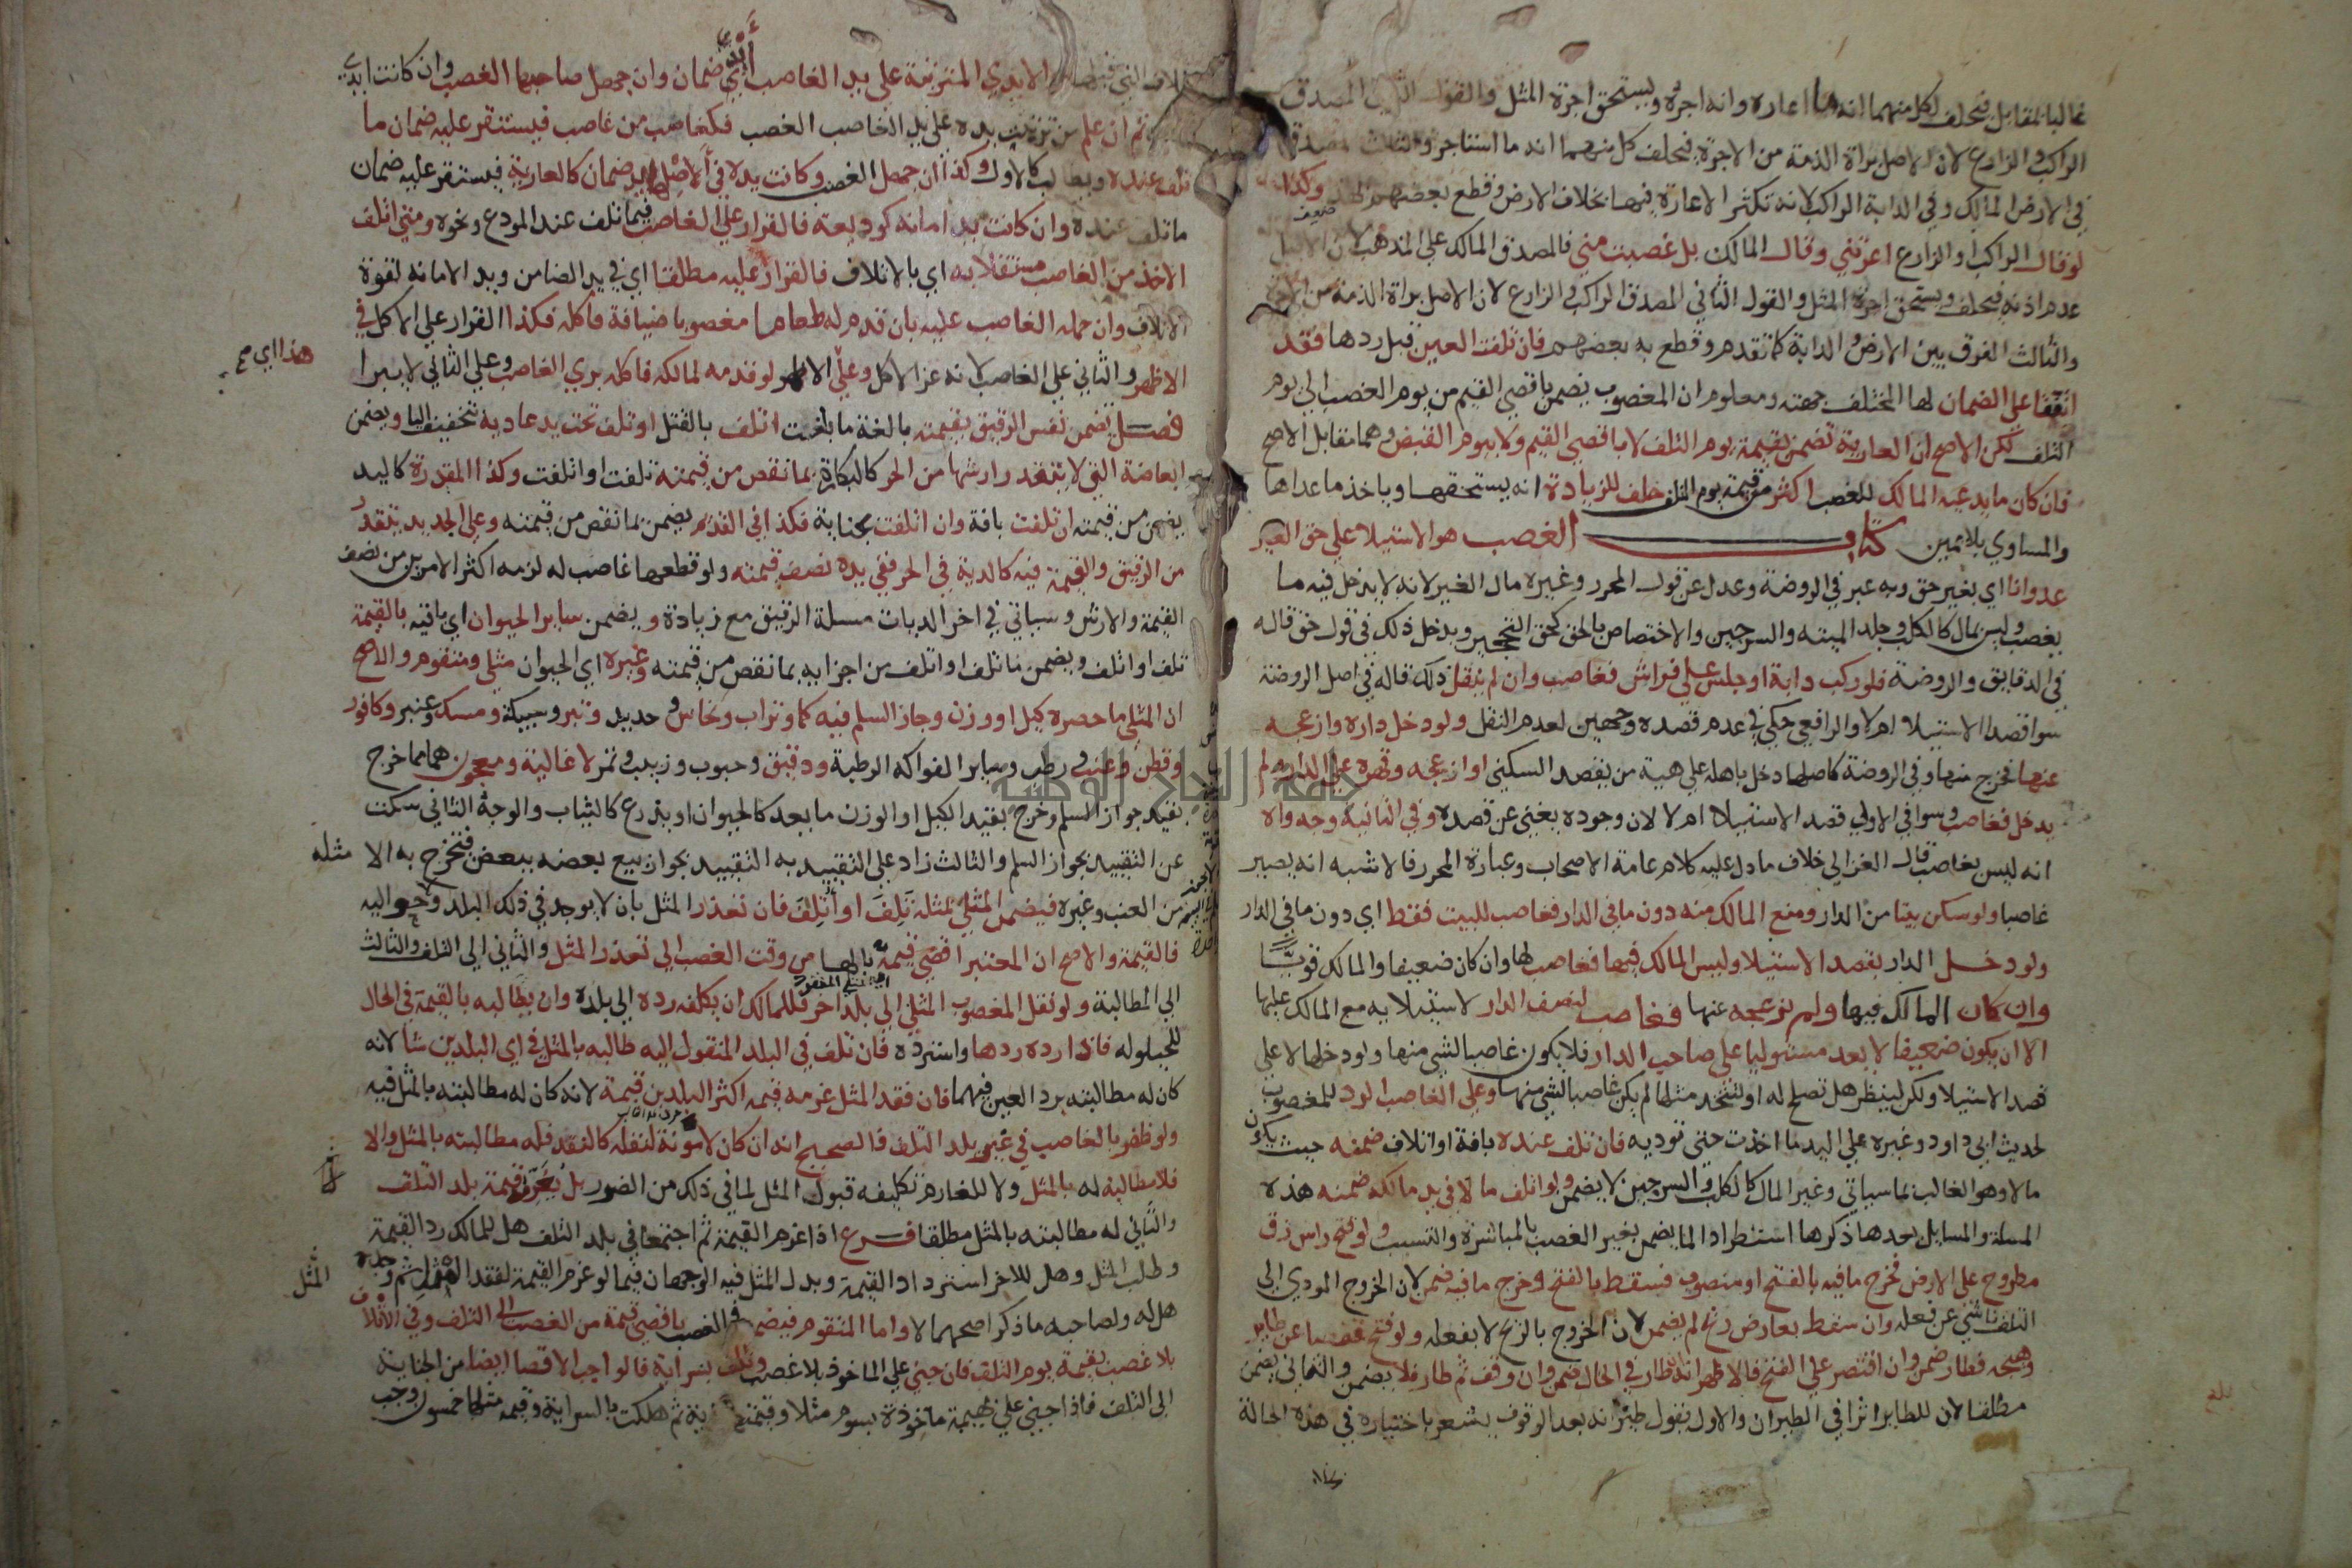 غالبا بمقابل فيحلف لكل منهما انه ما اعاره وانه اجره ويستحق اجرة المثل والقول الثاني المصدق
الراكب والزارع لان الاصل براة الذمة من الاجرة فيحلف كل منهما انه ما استاجر والثالث المصدق
في الارض المالك وفي الدابة الراكب لانه تكثر الاعارة فيها بخلاف الارض وقطع بعضهم وكذا
ضعيف
لو قال الراكب او الزارع اعرتني وقال المالك بل غصبت مني فالمصدق المالك على المذهب لان الاصل
عدم اذنه فيحلف ويستحق اجرة المثل والقول الثاني المصدق الراكب والزارع لان الاصل براة الذمة من الاجرة
والثالث الفرق بين الارض والدابة كما تقدم وقطع به بعضهم فان تلفت العين قبل ردها فقد
اتفقا على الضمان لها المختلف جهته ومعلوم ان المغصوب يضمن باقصى القيم من يوم الغصب الى يوم
التلف لكن الاصح ان العارية تضمن بقيمة يوم التلف لا باقصى القيم ولا بيوم القبض وهما مقابل الاصح
فان كان ما يدعيه المالك للغصب اكثر من قيمة يوم التلف حلف للزيادة انه يستحقها وياخذ ما عداها
والمساوي بلا يمين كتاب الغصب هو الاستيلا على حق الغير
عدوانا اي بغير حق وبه عبر في الروضة وعدل عن قول المحرر وغيره مال الغير لانه لا يدخل فيه ما
يغصب وليس بمال كالكلب وجلد الميتة والسرجين والاختصاص بالحق كحق التحجير ويدخل ذلك في قول حق قاله
في الدقايق والروضة فلو ركب دابة او جلس على فراش فغاصب وان لم ينقل ذلك قاله في اصل الروضة
سوا قصد الاستيلا ام لا والرافعي حكى في عدم قصده وجهين لعدم النقل ولو دخل داره وازعجه
عنها فخرج منها وفي الروضة كاصلها دخل باهله على هيئة من يقصد السكنى او ازعجه وقهره على الدار ولم
يدخل فغاصب وسوا في الاولى قصد الاستيلا ام لا لان وجوده يغني عن قصده وفي الثانية وجه واه
انه ليس بغاصب قال الغزالي خلاف ما دل عليه كلام عامة الاصحاب وعبارة المحرر فالاشبه انه يصير
غاصبا ولو سكن بيتا من الدار ومنع المالك منه دون ما في الدار فغاصب للبيت فقط اي دون ما في الدار
ولو دخل الدار بقصد الاستيلا وليس المالك فيها فغاصب لها وان كان ضعيفا والمالك قويا
وان كان المالك فيها ولم يزعجه عنها فغاصب لنصف الدار لاستيلايه مع المالك عليها
الا ان يكون ضعيفا لا يعد مستوليا على صاحب الدار فلا يكون غاصبا لشي منها ولو دخلها لا على
قصد الاستيلا ولكن لينظر هل تصلح له او ليتخذ مثلها لم يكن غاصبا لشي منها وعلى الغاصب الرد للمغصوب
لحديث ابي داود وغيره على اليد ما اخذت حتى توديه فان تلف عنده بافة او اتلاف ضمنه حيث يكون
مالا وهو الغالب بما سياتي وغير المال كالكلب والسرجين لا يضمن ولو اتلف مالا في يد مالكه ضمنه هذه
المسلة والمسايل بعدها ذكرها استطرادا لما يضمن بغير الغصب بالمباشرة والتسبب ولو فتح راس زق
مطروح على الارض فخرج ما فيه بالفتح او منصوب فسقط بالفتح وخرج ما فيه ضمن لان الخروج المودي الى
التلف ناشي عن فعله وان سقط بعارض ريح لم يضمن لان الخروج بالريح لا بفعله ولو فتح قفصا عن طاير
وهيجه فطار ضمن وان اقتصر على الفتح فالاظهر انه ان طار في الحال ضمن وان وقف ثم طار فلا يضمن والثاني يضمن
مطلقا لان للطاير اثرا في الطيران والاول يقول طيرانه بعد الوقوف يشعر باختياره في هذه الحالة
بلغ
الايدي المترتبة على يد الغاصب ايدي ضمان وان جهل صاحبها الغصب وان كانت ايدي
ثم ان علم من ترتبت يده على يد الغاصب الغصب فكغاصب من غاصب فيستقر عليه ضمان ما
تلف عنده ويطالب كالاول وكذا ان جهل الغصب وكانت يده في اصلها يد ضمان كالعارية فيستقر عليه ضمان
ما تلف عنده وان كانت يد امانة كوديعة فالقرار على الغاصب فيما تلف عند المودع ونحوه ومتى اتلف
الاخذ من الغاصب مستقلا به اي بالاتلاف فالقرار عليه مطلقا اي في يد الضامن ويد الامانة لقوة
الاتلاف وان حمله الغاصب عليه بان قدم له طعاما مغصوبا ضيافة فاكله فكذا القرار على الاكل في
هذا اي
الاظهر والثاني على الغاصب لانه غر الاكل وعلى الاظهر لو قدمه لمالكه فاكله بري الغاصب وعلى الثاني لا يبرا
فصل يضمن نفس الرقيق بقيمته بالغة ما بلغت اتلف بالقتل او تلف تحت يد عادية بتخفيف اليا ويضمن
ابعاضه التي لا يتقدر ارشها من الحر كالبكارة بما نقص من قيمته تلفت او اتلفت وكذا المقدرة كاليد
يضمن من قيمته ان تلفت بافة وان اتلفت بجناية فكذا في القديم يضمن بما نقص من قيمته وعلى الجديد يتقدر
من الرقيق والقيمة فيه كالدية في الحر ففي يده نصف قيمته ولو قطعها غاصب له لزمه اكثر الامرين من نصف
القيمة والارش وسياتي في اخر الديات مسلة الرقيق مع زيادة ويضمن ساير الحيوان اي باقيه بالقيمة
تلف او اتلف ويضمن ما تلف او اتلف من اجزايه بما نقص من قيمته وغيره اي الحيوان مثلي ومتقوم والاصح
ان المثلي ما حصره كيل او وزن وجاز السلم فيه كما وتراب ونحاس وحديد وتبر وسبيكة ومسك وعنبر وكافور
وقطن وعنب ورطب وساير الفواكه الرطبة ودقيق وحبوب وزبيب وتمر لا غالية ومعجون هما مما خرج
بقيد جواز السلم وخرج بقيد الكيل او الوزن ما يعد كالحيوان او يذرع كالثياب والوجه الثاني سكت
عن التقييد بجواز السلم والثالث زاد على التقييد به التقييد بجواز بيع بعضه ببعض فتخرج به الا مثله
من العنب وغيره فيضمن المثلي بمثله تلف او اتلف فان تعذر المثل بان لا يوجد في ذلك البلد وحواليه
فالقيمة والاصح ان المعتبر اقصى قيمه بالها من وقت الغصب الى تعذر المثل والثاني الى التلف والثالث
الى المطالبة ولو نقل المغصوب المثلي الى بلد اخر فللمالك ان يكلفه رده الى بلده وان يطالبه بالقيمة في الحال
للحيلوله فاذا رده ردها واسترده فان تلف في البلد المنقول اليه طالبه بالمثل في اي البلدين شا لانه
كان له مطالبته برد العين فيهما فان فقد المثل غرمه قيمة اكثر البلدين قيمة لانه كان له مطالبته بالمثل فيه
ولو ظفر بالغاصب في غير بلد التلف فالصحيح انه ان كان لا مونة لنقله كالنقد فله مطالبته بالمثل والا
فلا مطالبة له بالمثل ولا للغارم تكليفه قبول المثل لما في ذلك من الضرر بل يغرمه قيمة بلد التلف
والثاني له مطالبته بالمثل مطلقا فرع اذا غرم القيمة ثم اجتمعا في بلد التلف هل للمالك رد القيمة
وطلب المثل وهل للاخر استرداد القيمة وبدل المثل فيه الوجهان فيما لو غرم القيمة لفقد المثل ثم وجده المثل
هل له ولصاحبه ما ذكر اصحهما لا واما المتقوم فيضمن في الغصب باقصى قيمة من الغصب الى التلف وفي الاتلاف
بلا غصب بقيمة يوم التلف فان جنى على الماخوذ بلا غصب وتلف بسراية فالواجب الاقصا ايضا من الجناية
الى التلف فاذا جنى على بهيمة ماخوذة بسوم مثلا وقيمتها مية ثم هلكت بالسراية وقيمة مثلها خمسون وجب
جامعة النجاح الوطنية